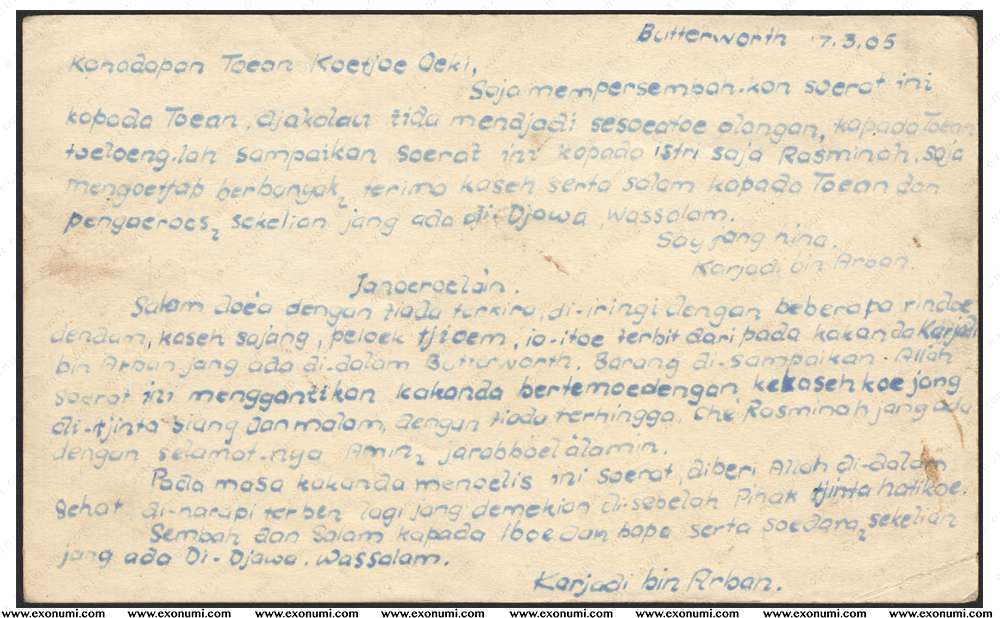 Butterworth 7.3.05
Kahadapan Toean Koetjoe Oeki,
Saja mempersembah-kan soerat ini
kapada Toean, djakalau tida mendjadi sesoeatoe olongan, kapada Toean
toeloeng-lah sampaikan soerat ini kapada istri saja Rasminah, saja
mengoetjap berbanjak2 terima kaseh serta salam kapada Toean dan
pengaeroes2 sekelian jang ada di-Djawa, Wassalam.
Say jang hina.
Karjadi bin Arban.
Janoeroelain.
Salam doéa dengan tiada terkira, di-iringi dengan beberapa rindoe
dendam, kaseh sajang, peloek tjioem, ia-itoe terbit dari pada kakanda Karjadi
bin Arban jang ada di-dalam Butterworth. Barang di-sampaikan Allah
soerat ini menggantikan kakanda bertemoe dengan kekasehkoe jang
di-tjinta siang dan malam, dengan tiada terhingga. Che' Rasminah jang ada
dengan selamat-nya Amin2 jarabboel'alamin.
Pada masa kakanda menoelis ini soerat, diberi Allah di-dalam
sehat, di-harapi terben lagi jang demekian di-sebelah Pihak tjinta hatikoe.
Sembah dan Salam kapada Iboe dan bapa serta soedara2 sekelian
jang ada Di-Djawa. Wassalam.
Karjadi bin Arban.
www.exonumi.com www.exonumi.com www.exonumi.com www.exonumi.com www.exonumi.com www.exonumi.com www.exonumi.com www.exonumi.com